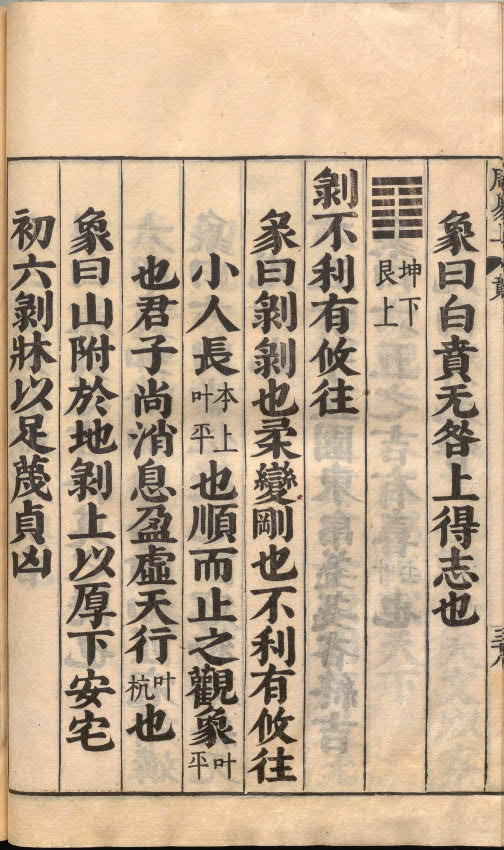 象曰白賁无咎上得志也
䷖坤下艮上
剝不利有攸往
彖曰剝剝也柔變剛也不利有攸往
小人長本上叶平也順而止之觀象叶平
也君子尚消息盈虛天行叶杭也
象曰山附於地剝上以厚下安宅
初六剝牀以足蔑貞凶